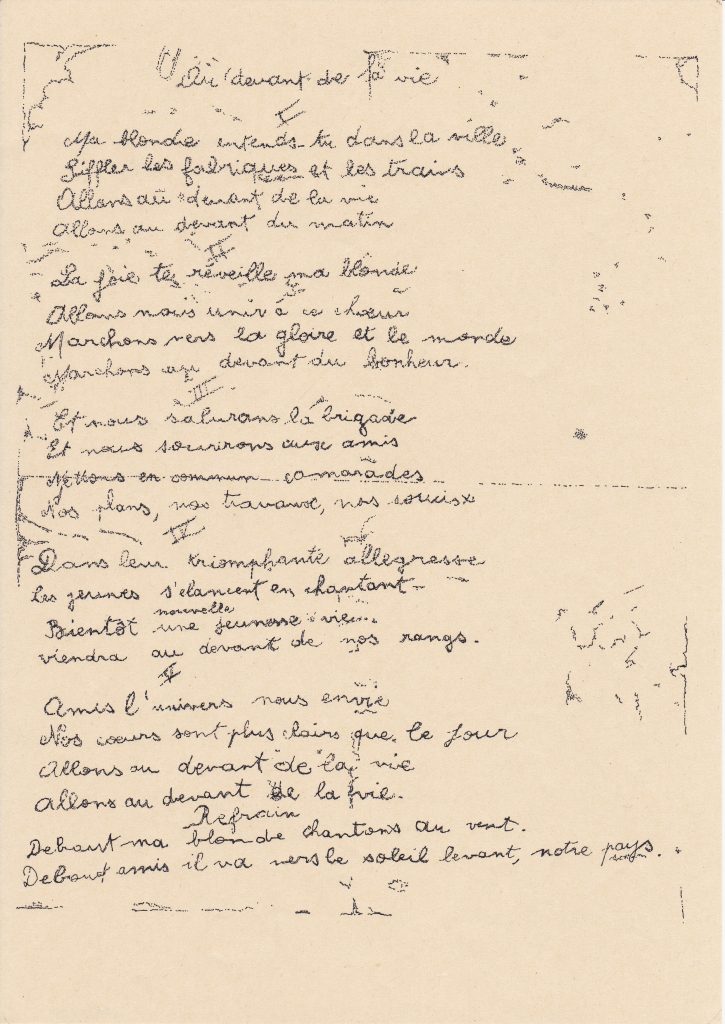 Au devant de la vie
I
Ma blonde entends-tu dans la ville
Siffler les fabriques et les trains
Allons au devant de la vie
Allons au devant du matin
II
La joie te réveille ma blonde
Allons nous unir à ce chœur
Marchons vers la gloire et le monde
Marchons au devant du bonheur.
III
Et nous salurans la brigade
Et nous sourirons aux amis
Mettons en commun camarades
Nos plans, nos travaux, nos soucis
IV
Dans leur triomphante allegresse
Les jeunes s'elancent en chantant
nouvelle
Bientôt une jeunesse vie...
viendra au devant de nos rangs.
V
Amis l'univers nous envie
Nos cœurs sont plus clairs que le jour
Allons au devant de la vie
Allons au devant de la vie.
Refrain
Debout ma blonde chantons au vent.
Debout amis il va vers le soleil levant, notre pays.